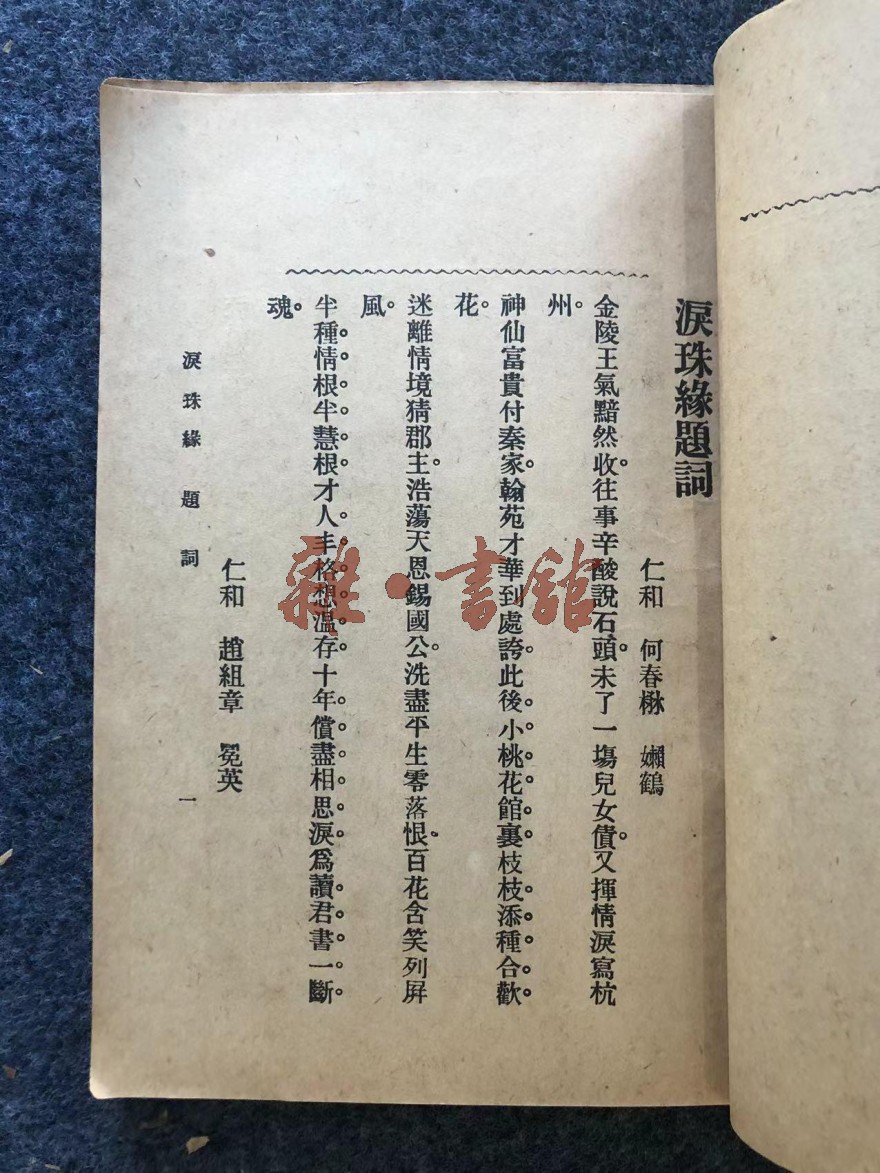 淚珠緣題詞
仁和　何春楙　嬾鶴
金陵王氣黯然收。往事辛酸說石頭。未了一塲兒女債。又揮情淚寫杭
州。
神仙富貴付秦家。翰苑才華到處誇。此後小桃花館裏。枝枝添種合歡
花。
迷離情境猜郡主。浩蕩天恩錫國公。洗盡平生零落恨。百花含笑列屛
風。
半種情根半慧根。才人丰格想溫存。十年償盡相思淚。爲讀君書一斷
魂。
仁和　趙組章　冕英
淚珠緣　題詞
一
雜·書館